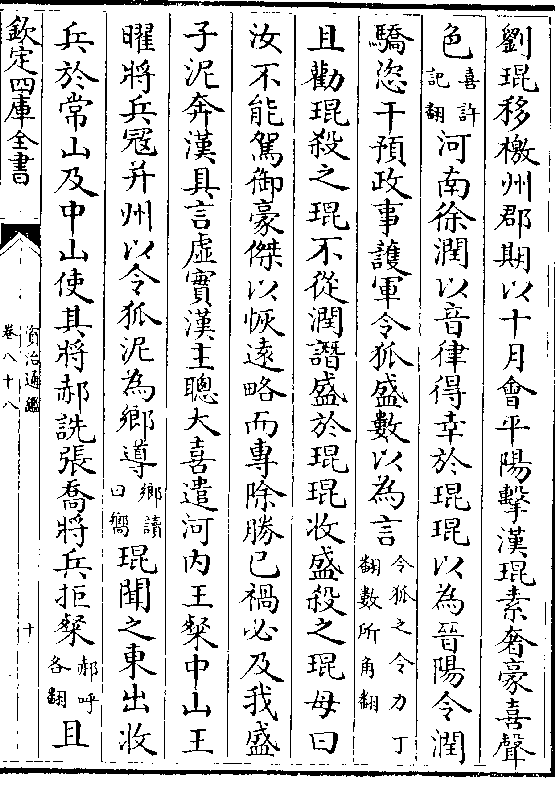 劉琨移檄州郡期以十月會平陽擊漢琨素奢豪喜聲
色喜許記翻河南徐潤以音律得幸於琨琨以為晉陽令潤
驕恣干預政事護軍令狐盛數以為言令狐之令力丁翻數所角翻
且勸琨殺之琨不從潤譖盛於琨琨收盛殺之琨母曰
汝不能駕御豪傑以恢遠略而專除勝己禍必及我盛
子泥奔漢具言虛實漢主聰大喜遣河内王粲中山王
曜將兵寇并州以令狐泥為鄉導鄉讀曰嚮琨聞之東出收
兵於常山及中山使其將郝詵張喬將兵拒粲郝呼各翻且
欽定四庫全書
資治通鑑
卷八十八
十